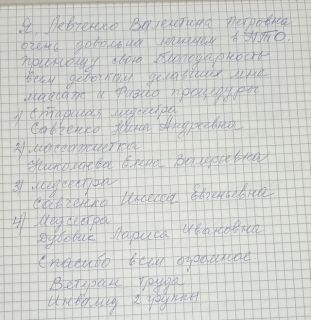 Я, Левченко Валентина Петровна
очень довольна лечением в НТО.
Приношу свою благодарность
всем девочкам делавших мне
массаж и физио процедуры
1) Старшая медсестра
Савченко Нина Андреевна
2) массажистка
Николаева Елена Валерьевна
3) медсестра
Савченко Инесса Евгеньевна
4) Медсестра
Дубовик Лариса Ивановна
Спасибо всем огромное
Ветеран Труда
Инвалид 2 группы